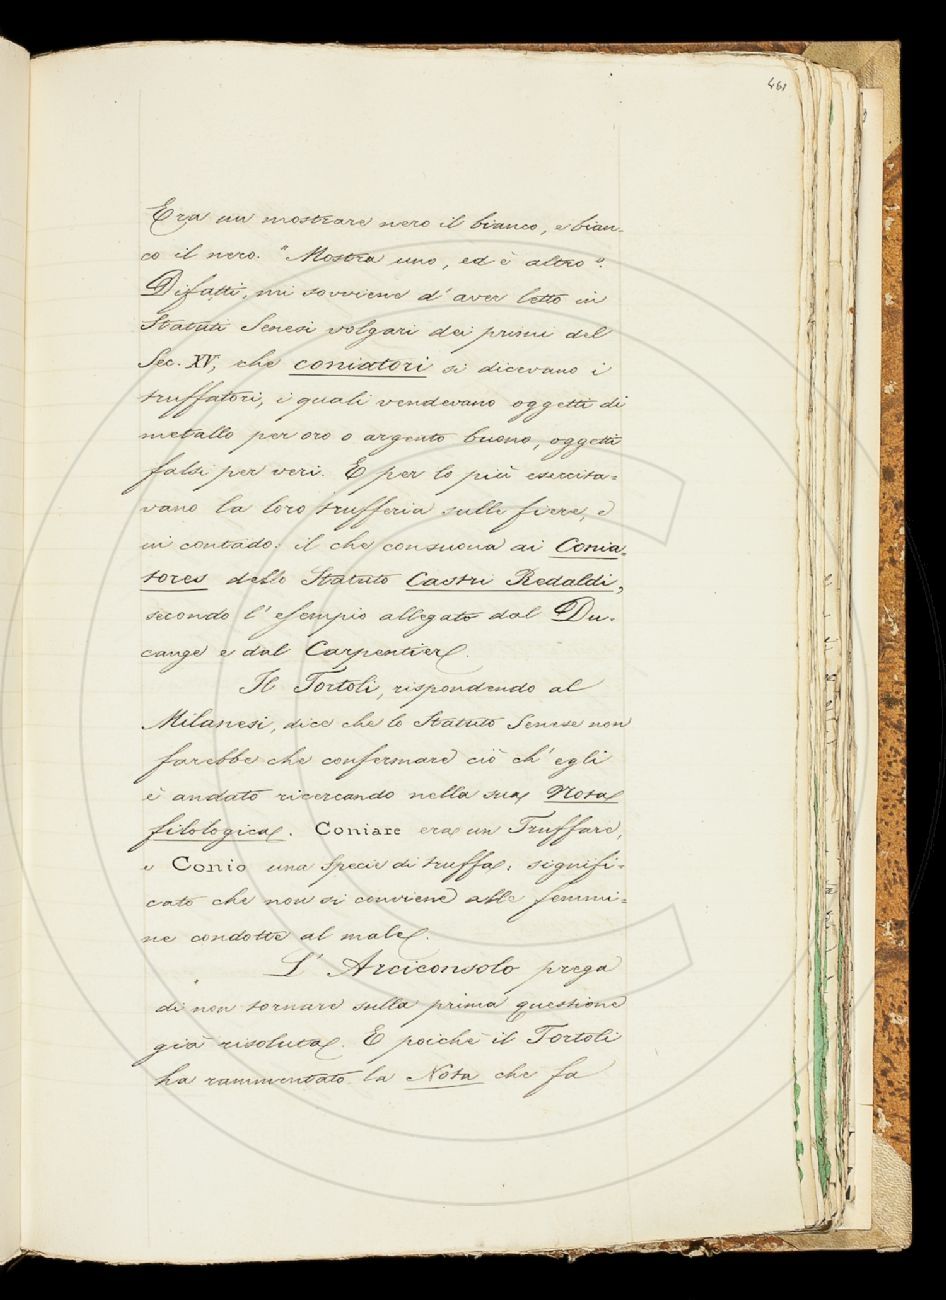 461
Era un mostrare nero il bianco, e bian-
co il nero. "Mostra uno, ed è altro".
Difatti, mi sovviene d'aver letto in
Statuti Senesi volgari dei primi del
Sec. XV, che coniatori si dicevano i
truffatori, i quali vendevano oggetti di
metallo per oro o argento buono, oggetti
falsi per veri. E per lo più esercita=
vano la loro trufferia sulle fiere, e
in contado: il che consuona ai Conia-
tores dello Statuto Castri Redaldi,
secondo l'esempio allegato dal Du-
cange e dal Carpentier.
Il Tortoli, rispondendo al
Milanesi, dice che lo Statuto Senese non
farebbe che confermare ciò ch'egli
è andato ricercando nella sua Nota
filologica. Coniare era un Truffare,
e Conio una specie di truffa: signifi=
cato che non si conviene alle femmi=
ne condotte al male.
L'Arciconsolo prega
di non tornare sulla prima questione
già risoluta. E poichè il Tortoli
ha rammentato la Nota che fa